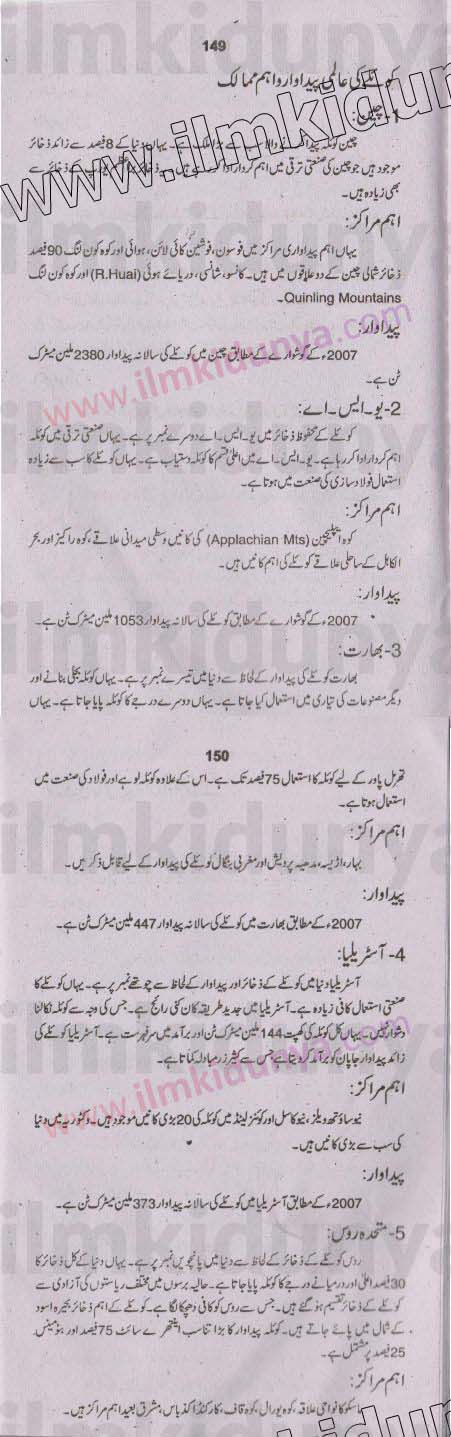 149
کوئلے کی عالمی پیداوار و اہم ممالک
1- چین:
چین کوئلہ پیدا سب سے بڑا ملک ہے۔ یہاں دنیا کے 8 فیصد سے زائد ذخائر
موجود ہیں جو چین کی صنعتی ترقی میں اہم کردار ادا کے ذخائر سے
بھی زیادہ ہیں۔
اہم مراکز:
یہاں اہم پیداواری مراکز میں فوسون، فوشین کائی لائن، ہوائی اور کوہ کون لنگ 90 فیصد
ذخائر شمالی چین کے دو علاقوں میں ہیں۔ کانسو، شانسی، دریائے ہوئی (R.Huai) اور کوہ کون لنگ
Quinling Mountains۔
پیداوار:
2007ء کے گوشوارے کے مطابق چین میں کوئلے کی سالانہ پیداوار 2380 ملین میٹرک
ٹن ہے۔
2- یو۔ایس۔اے:
کوئلے کے محفوظ ذخائر میں یو۔ایس۔اے دوسرے نمبر پر ہے۔ یہاں صنعتی ترقی میں کوئلہ
اہم کردار ادا کر رہا ہے۔ یو۔ایس۔اے میں اعلیٰ قسم کا کوئلہ دستیاب ہے۔ یہاں کوئلے کا سب سے زیادہ
استعمال فولاد سازی کی صنعت میں ہوتا ہے۔
اہم مراکز:
کوہ اپلیچین (Applachian Mts) کی کانیں وسطی میدانی علاقے، کوہ راکیز اور بحر
الکاہل کے ساحلی علاقے کوئلے کی اہم کانیں ہیں۔
پیداوار:
2007ء کے گوشوارے کے مطابق کوئلے کی سالانہ پیداوار 1053 ملین میٹرک ٹن ہے۔
3- بھارت:
بھارت کوئلے کی پیداوار کے لحاظ سے دنیا میں تیسرے نمبر پر ہے۔ یہاں کوئلہ بجلی بنانے اور
دیگر مصنوعات کی تیاری میں استعمال کیا جاتا ہے۔ یہاں دوسرے درجے کا کوئلہ پایا جاتا ہے۔ یہاں
150
تھرمل پاور کے لیے کوئلہ کا استعمال 75 فیصد تک ہے۔ اس کے علاوہ کوئلہ لوہے اور فولاد کی صنعت میں
استعمال ہوتا ہے۔
اہم مراکز:
بہار، اڑیسہ، مدھیہ پردیش اور مغربی بنگال کوئلے کی پیداوار کے لیے قابل ذکر ہیں۔
پیداوار:
2007ء کے مطابق بھارت میں کوئلے کی سالانہ پیداوار 447 ملین میٹرک ٹن ہے۔
4- آسٹریلیا:
آسٹریلیا دنیا میں کوئلے کے ذخائر اور پیداوار کے لحاظ سے چوتھے نمبر پر ہے۔ یہاں کوئلے کا
صنعتی استعمال کافی زیادہ ہے۔ آسٹریلیا میں جدید طریقہ کان کنی رائج ہے۔ جس کی وجہ سے کوئلہ نکالنا
دشوار نہیں۔ یہاں کل کوئلہ کی کھپت 144 ملین میٹرک ٹن اور برآمد میں سرفہرست ہے۔ آسٹریلیا کوئلے کی
زائد پیداوار جاپان کو برآمد کر دیتا ہے جس سے کثیر زرمبادلہ کماتا ہے۔
اہم مراکز:
نیو ساؤتھ ویلز، نیو کاسل اور کوئنز لینڈ میں کوئلہ کی 20 بڑی کانیں موجود ہیں۔ وکٹوریہ میں دنیا
کی سب سے بڑی کانیں ہیں۔
پیداوار:
2007ء کے مطابق آسٹریلیا میں کوئلے کی سالانہ پیداوار 373 ملین میٹرک ٹن ہے۔
5- متحدہ روس:
روس کوئلے کے ذخائر کے لحاظ سے دنیا میں پانچویں نمبر پر ہے۔ یہاں دنیا کے کل ذخائر کا
30 فیصد اعلیٰ اور درمیانے درجے کا کوئلہ پایا جاتا ہے۔ حالیہ برسوں میں مختلف ریاستوں کی آزادی سے
کوئلے کے ذخائر تقسیم ہو گئے ہیں۔ جس سے روس کو کافی دھچکا لگا ہے۔ کوئلے کے اہم ذخائر بحیرہ اسود
کے شمال میں پائے جاتے ہیں۔ کوئلہ پیداوار کا بڑا تناسب اینتھرے سائٹ 75 فیصد اور بٹومینس
25 فیصد پر مشتمل ہے۔
اہم مراکز:
ماسکو کا نواحی علاقہ، کوہ یورال، کوہ قاف، کارکنڈا کذباس، مشرق بعید اہم مراکز ہیں۔
www.ilmkidunya.com